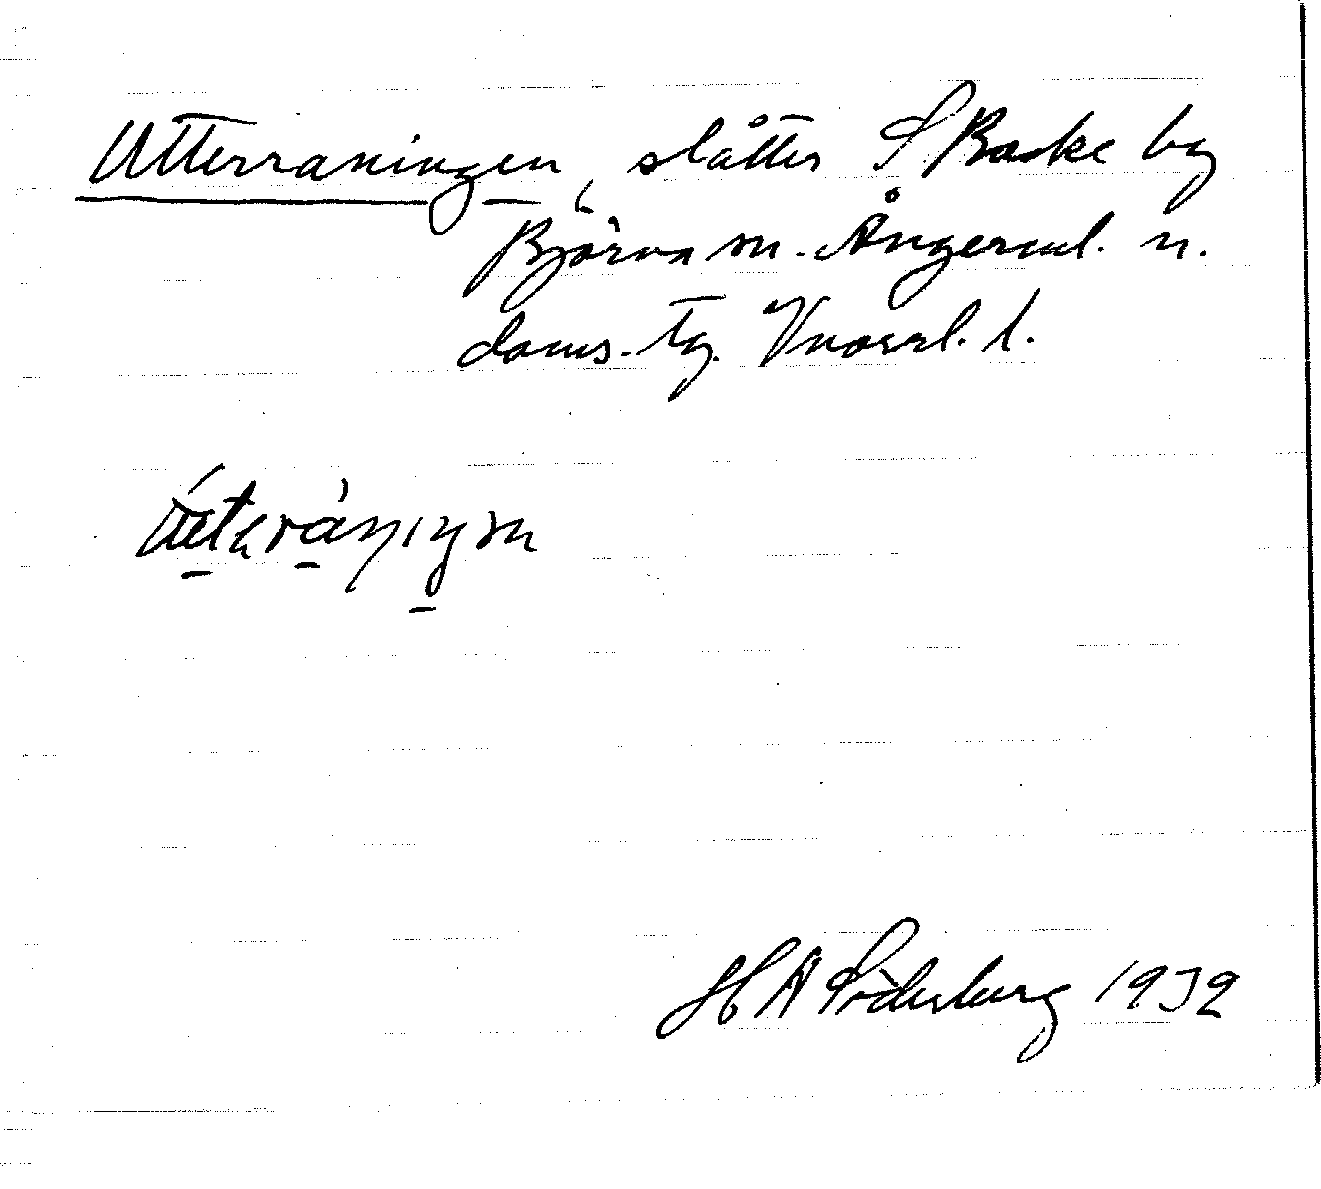 Utterraningen, slåtter S. Backe by
Björna sn. Ångerml. n.
doms. tg. Vnorrl. l.
H A Söderberg 1932